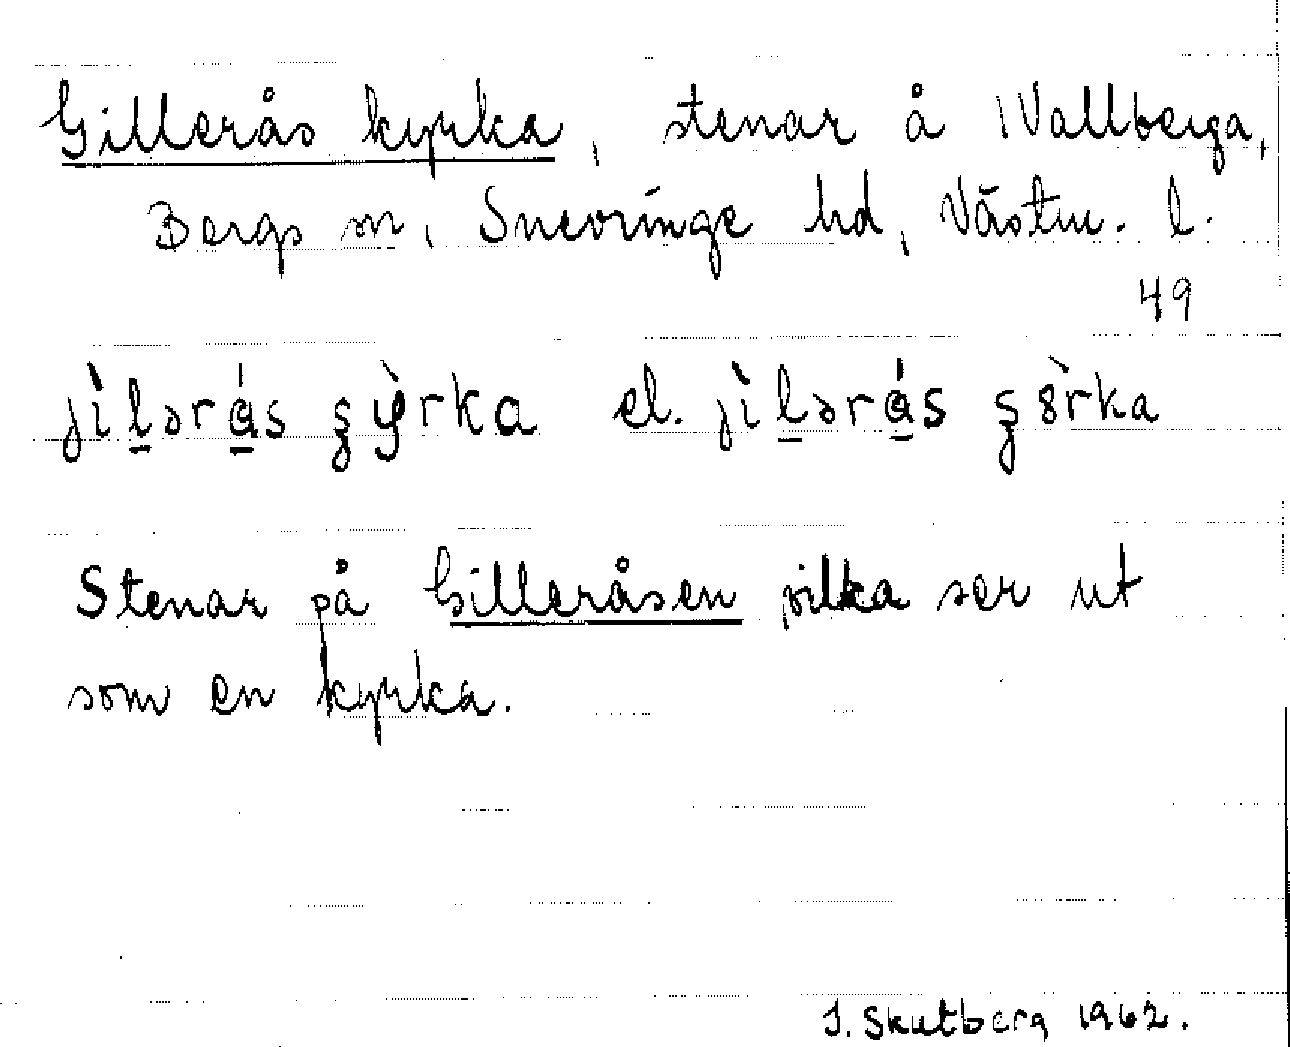 Gillerås kyrka, stenar å Vallberga,
Bergs sn, Snevringe hd, Västm. l.
49
jìlərá̱s şỳrka el. jìlərá̱s şɵ̀rka
Stenar på Gilleråsen vilka ser ut
som en kyrka.
J. Skutberg 1962.